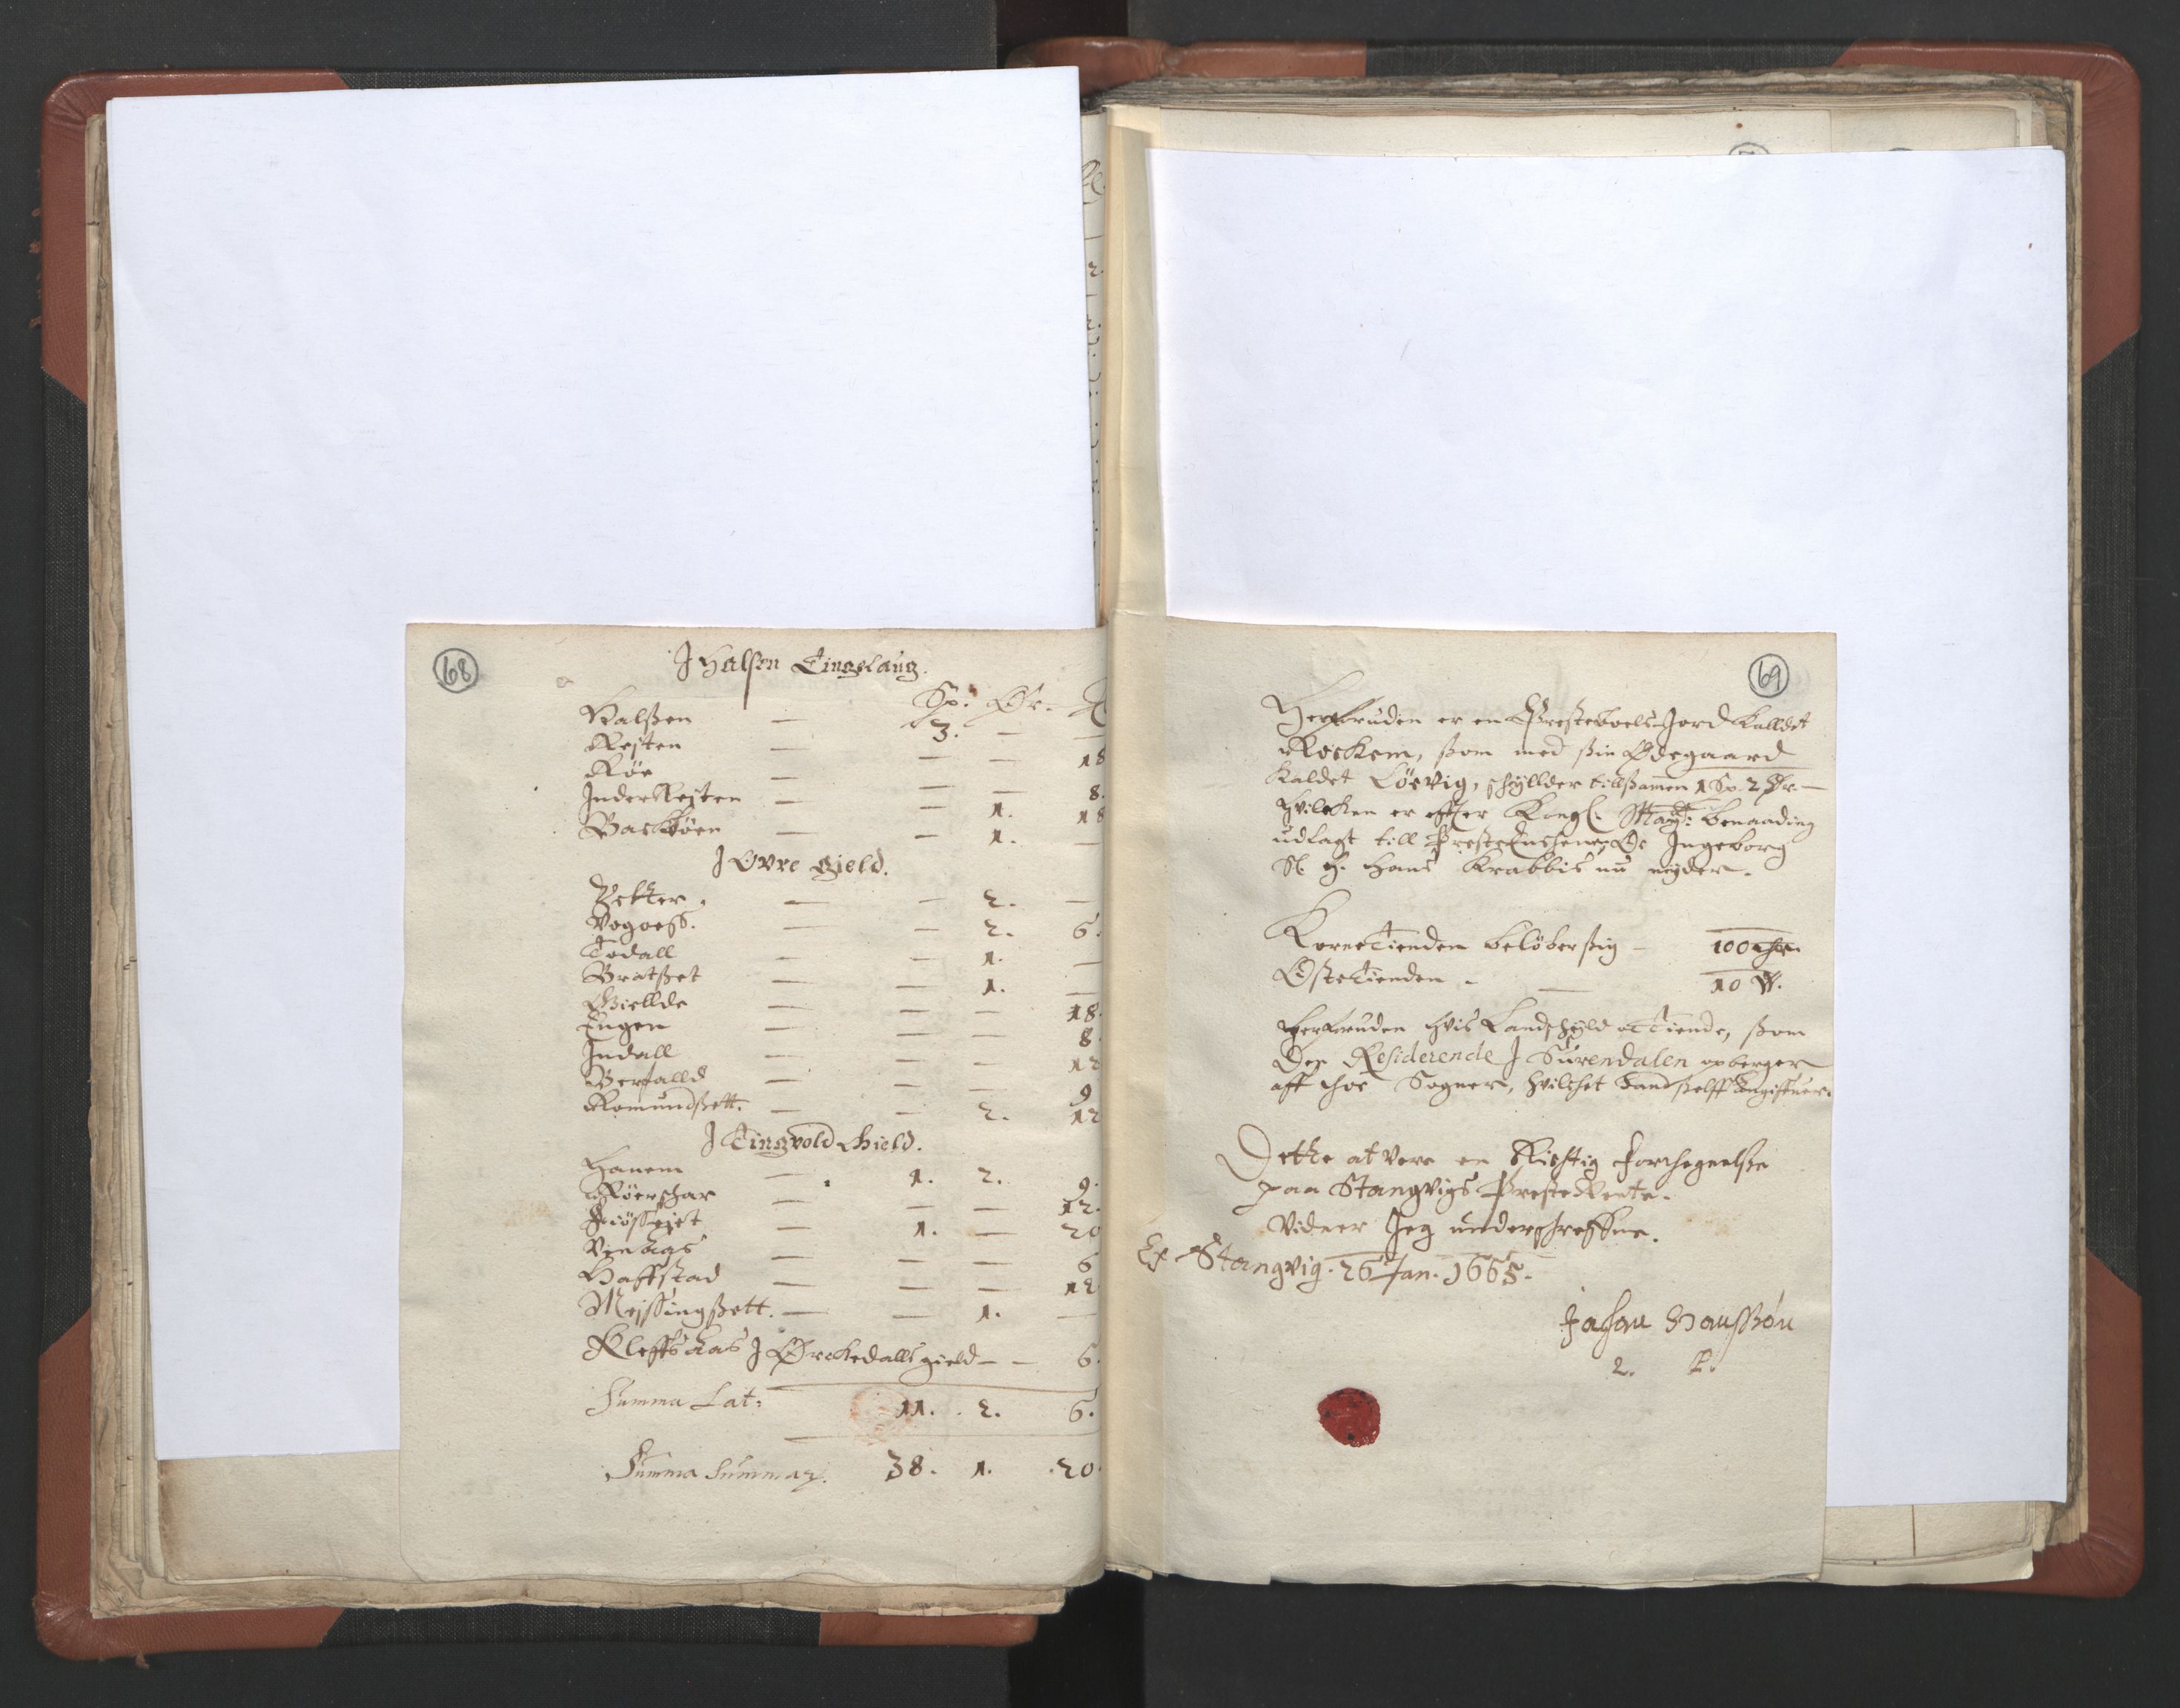 68
J Halsen Tingelaug.
Sp. Ør.
Halßen — 3. — —
Rejten — — — 18
Røe — — — 8.
InderRejten — — 1. 18
Backøen — — 1. —
J Øvre gield.
Setter. — — 2. —
Vogoeß. — — 2. 6.
Todall — — 1. —
Bratßet — — 1. —
Giellde — — — 18.
Engen — — — 8.
Jndall — — — 12
Berfalld — — — 9
Romundßett. — — 2. 12
J Tingvold Gield.
Hanem — 1. 2. 9.
Røerschar — — — 12.
— 1. — 20
— — — 6
Haffstad — — — 12.
Mejsingßett. — — 1. —
Kleffsaas J Ørckedalls gield — — 6.
Summa Lat: 11. 2. 6.
Summa Summar. 38. 1. 20.
69
Herforuden er en Prestebools Jord kalldet
Rockem, som med sin Ødegaard
kaldet Løevig, schyllder tillsamen 1 Sp. 2 Ør. —
Hvilcken er efter Kongl. Maytt: benaading
udlagt till PresteEncherne, Ingeborg
Sl. H. Hans Krabbis nu nyder.
KorneTienden beløber sig — 100
OsteTienden — — 10
Herforuden hvis Landschyld oc Tiende, som
Den Residerende J Surendalen opberger
aff thoe Sogner, hvilchet hand selff angiffuer.
Dette at vere en Richtig Forthegnelse
paa Stangvigs PresteRente.
Vidner Jeg underschreffne.
Ex Stangvig. 26 Jan. 1665.
Hanssøn